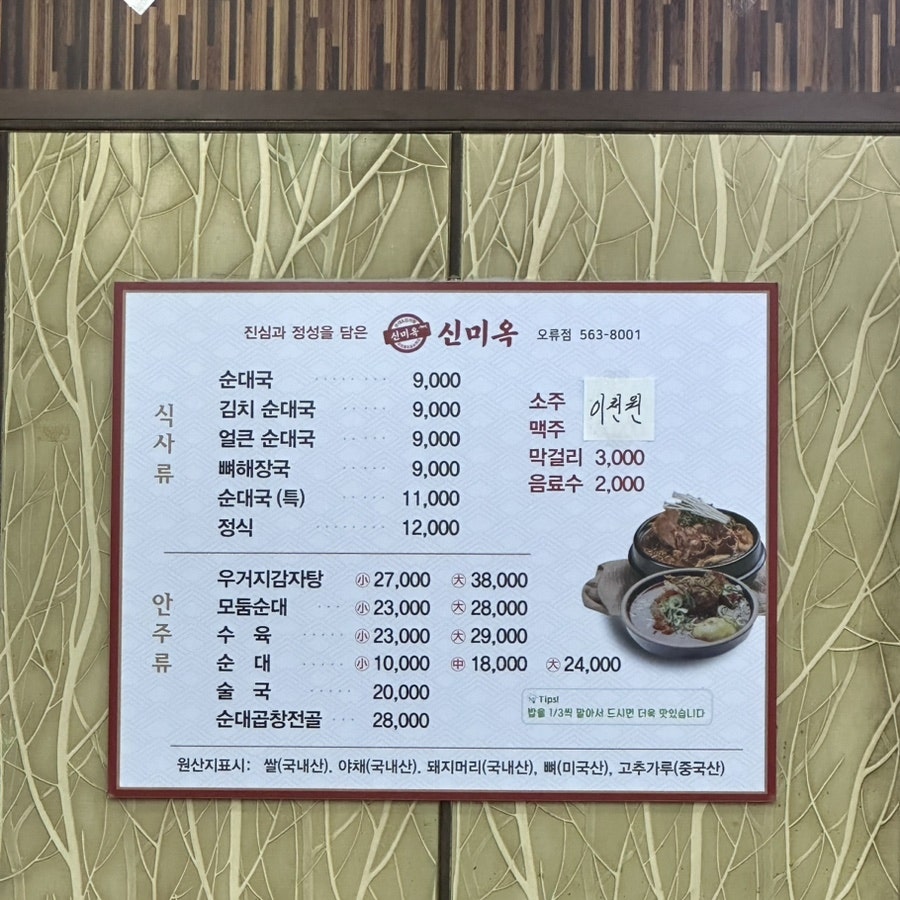 진심과 정성을 담은 신미옥 신미옥 오류점 563-8001
식사류
순대국 ········ 9,000
김치 순대국 ····· 9,000
얼큰 순대국 ····· 9,000
뼈해장국 ····· 9,000
순대국 (특) ····· 11,000
정식 ········ 12,000
소주 이천원
맥주
막걸리 3,000
음료수 2,000
안주류
우거지감자탕 小 27,000 大 38,000
모둠순대 ··· 小 23,000 大 28,000
수 육 ····· 小 23,000 大 29,000
순 대 ····· 小 10,000 中 18,000 大 24,000
술 국 ····· 20,000
순대곱창전골 ··· 28,000
Tips!
밥을 1/3씩 말아서 드시면 더욱 맛있습니다
원산지표시: 쌀(국내산). 야채(국내산). 돼지머리(국내산), 뼈(미국산), 고추가루(중국산)